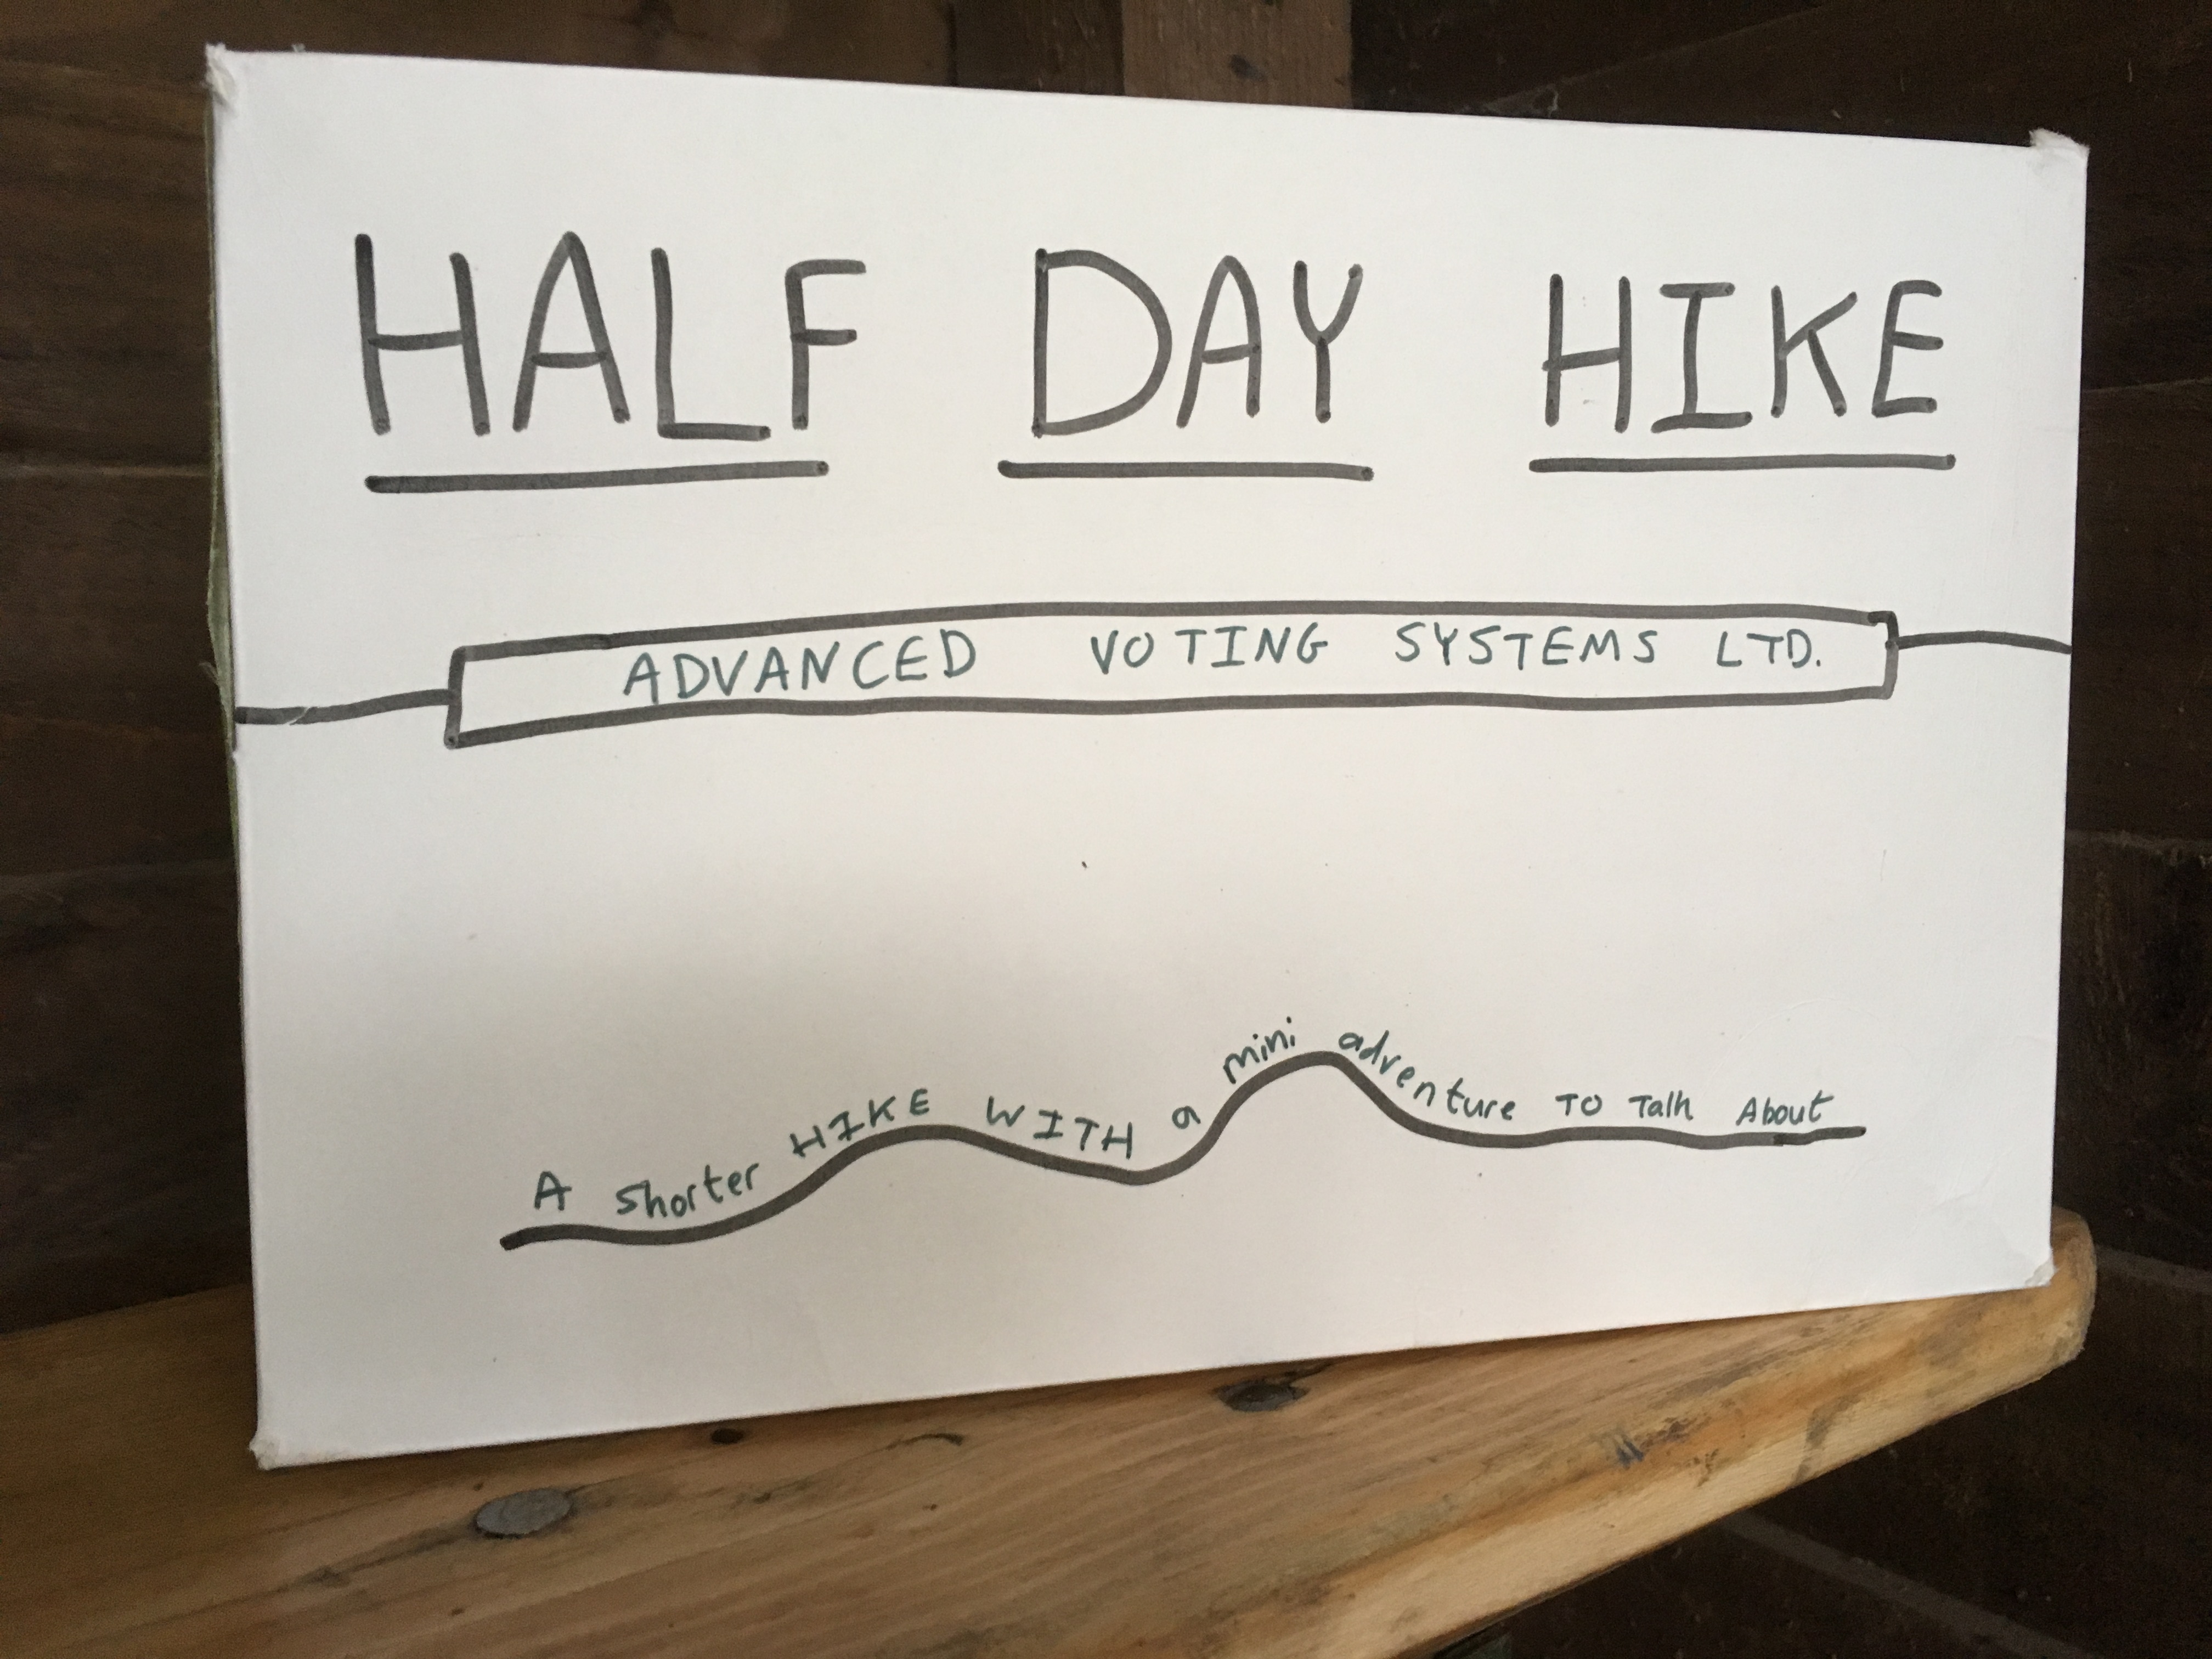 HALF DAY HIKE
ADVANCED VOTING SYSTEMS LTD.
A shorter HIKE WITH a mini adventure TO Talk About